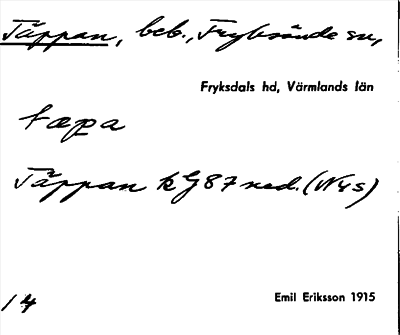 Täppan, beb., Fryksände sn,
Fryksdals hd, Värmlands län
tæpa
Täppan kG87 ned. (N4s)
14
Emil Eriksson 1915